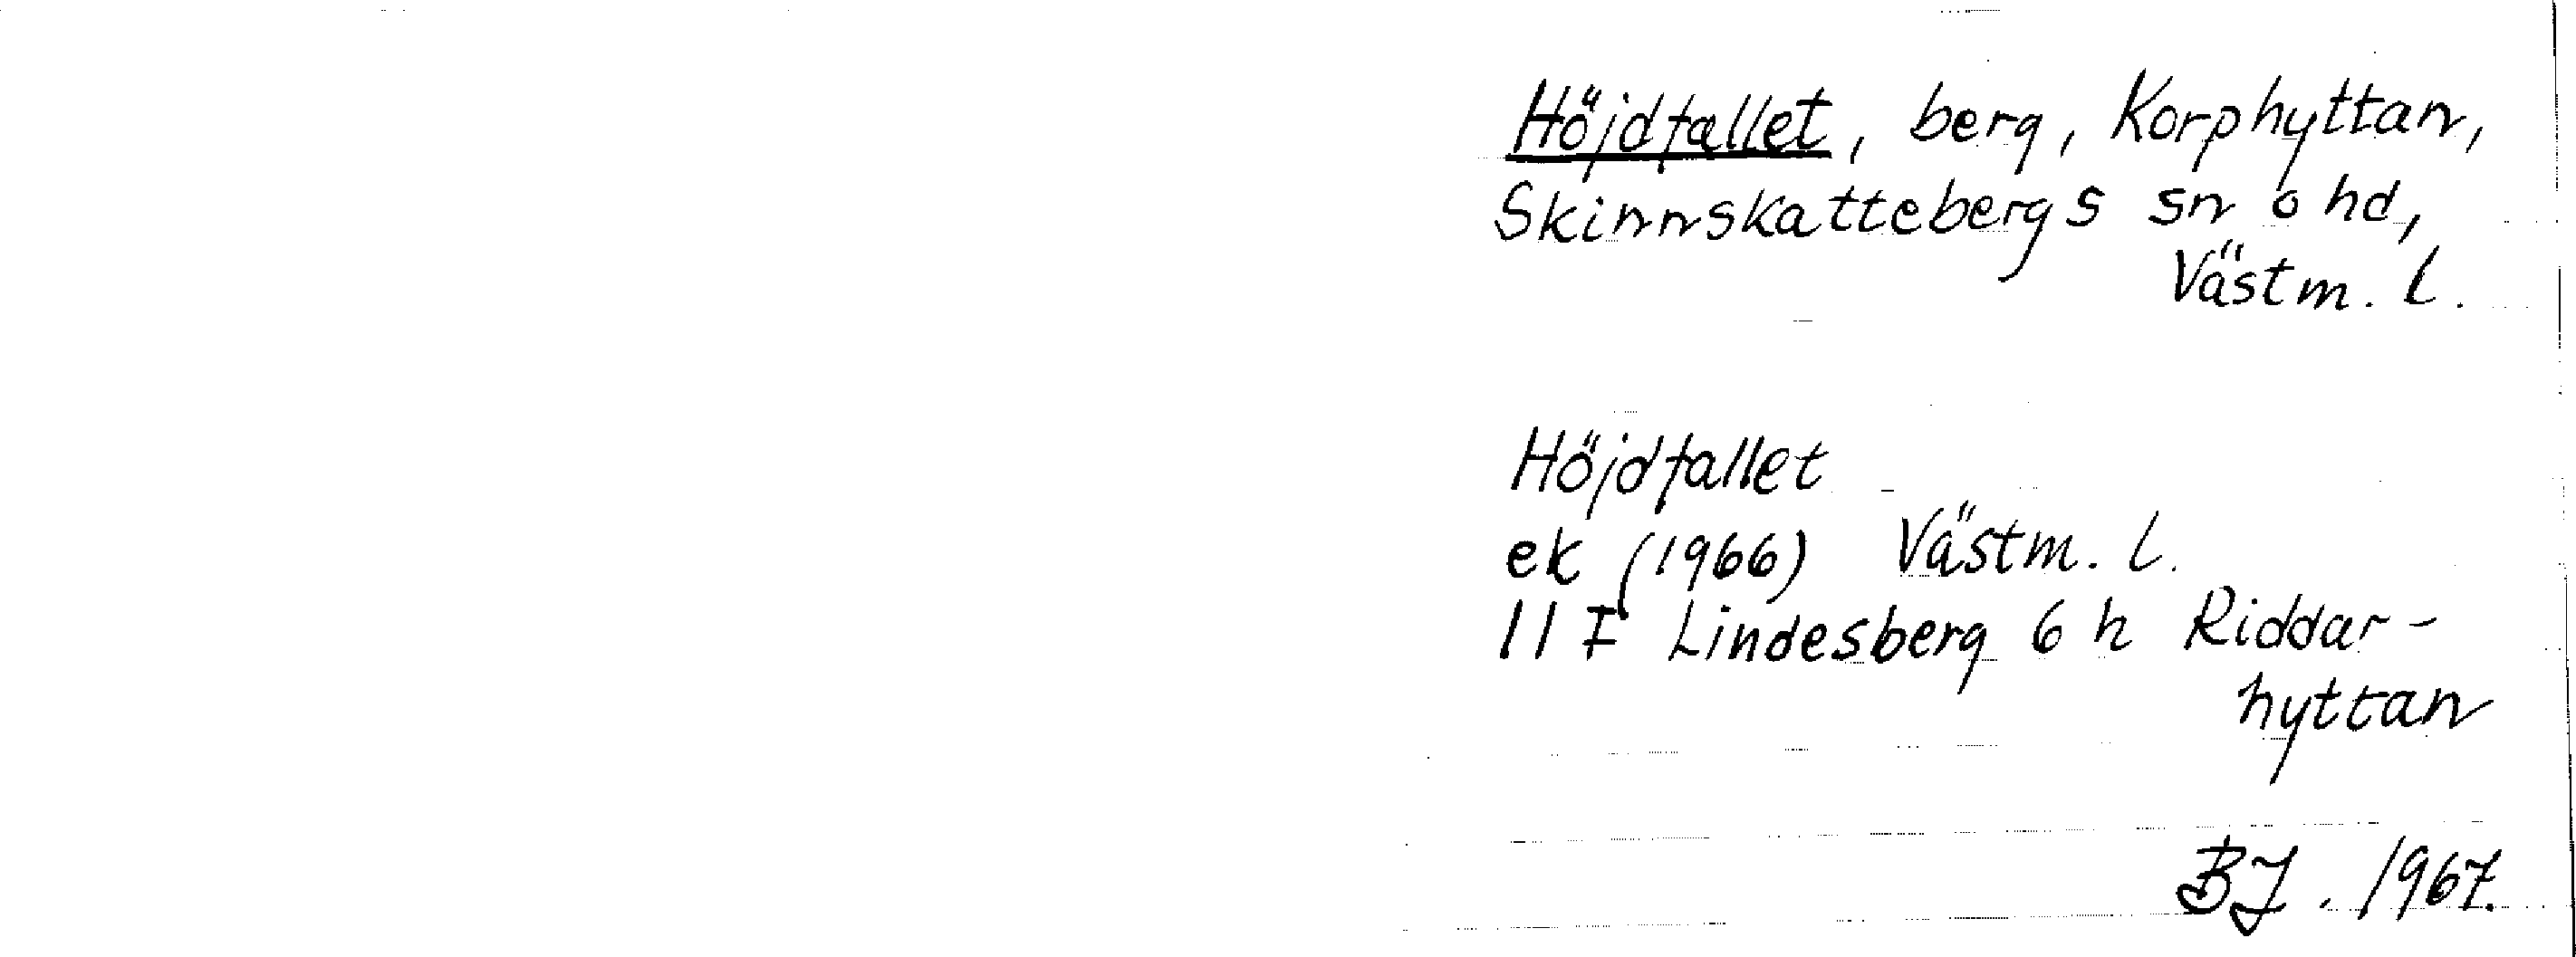 Höjdfallet, berg, Korphyttan,
Skinnskattebergs sn o hd,
Västm. l.
Höjdfallet
ek (1966) Västm. l.
11 F Lindesberg 6 h Riddar-
hyttan
BJ. 1967.